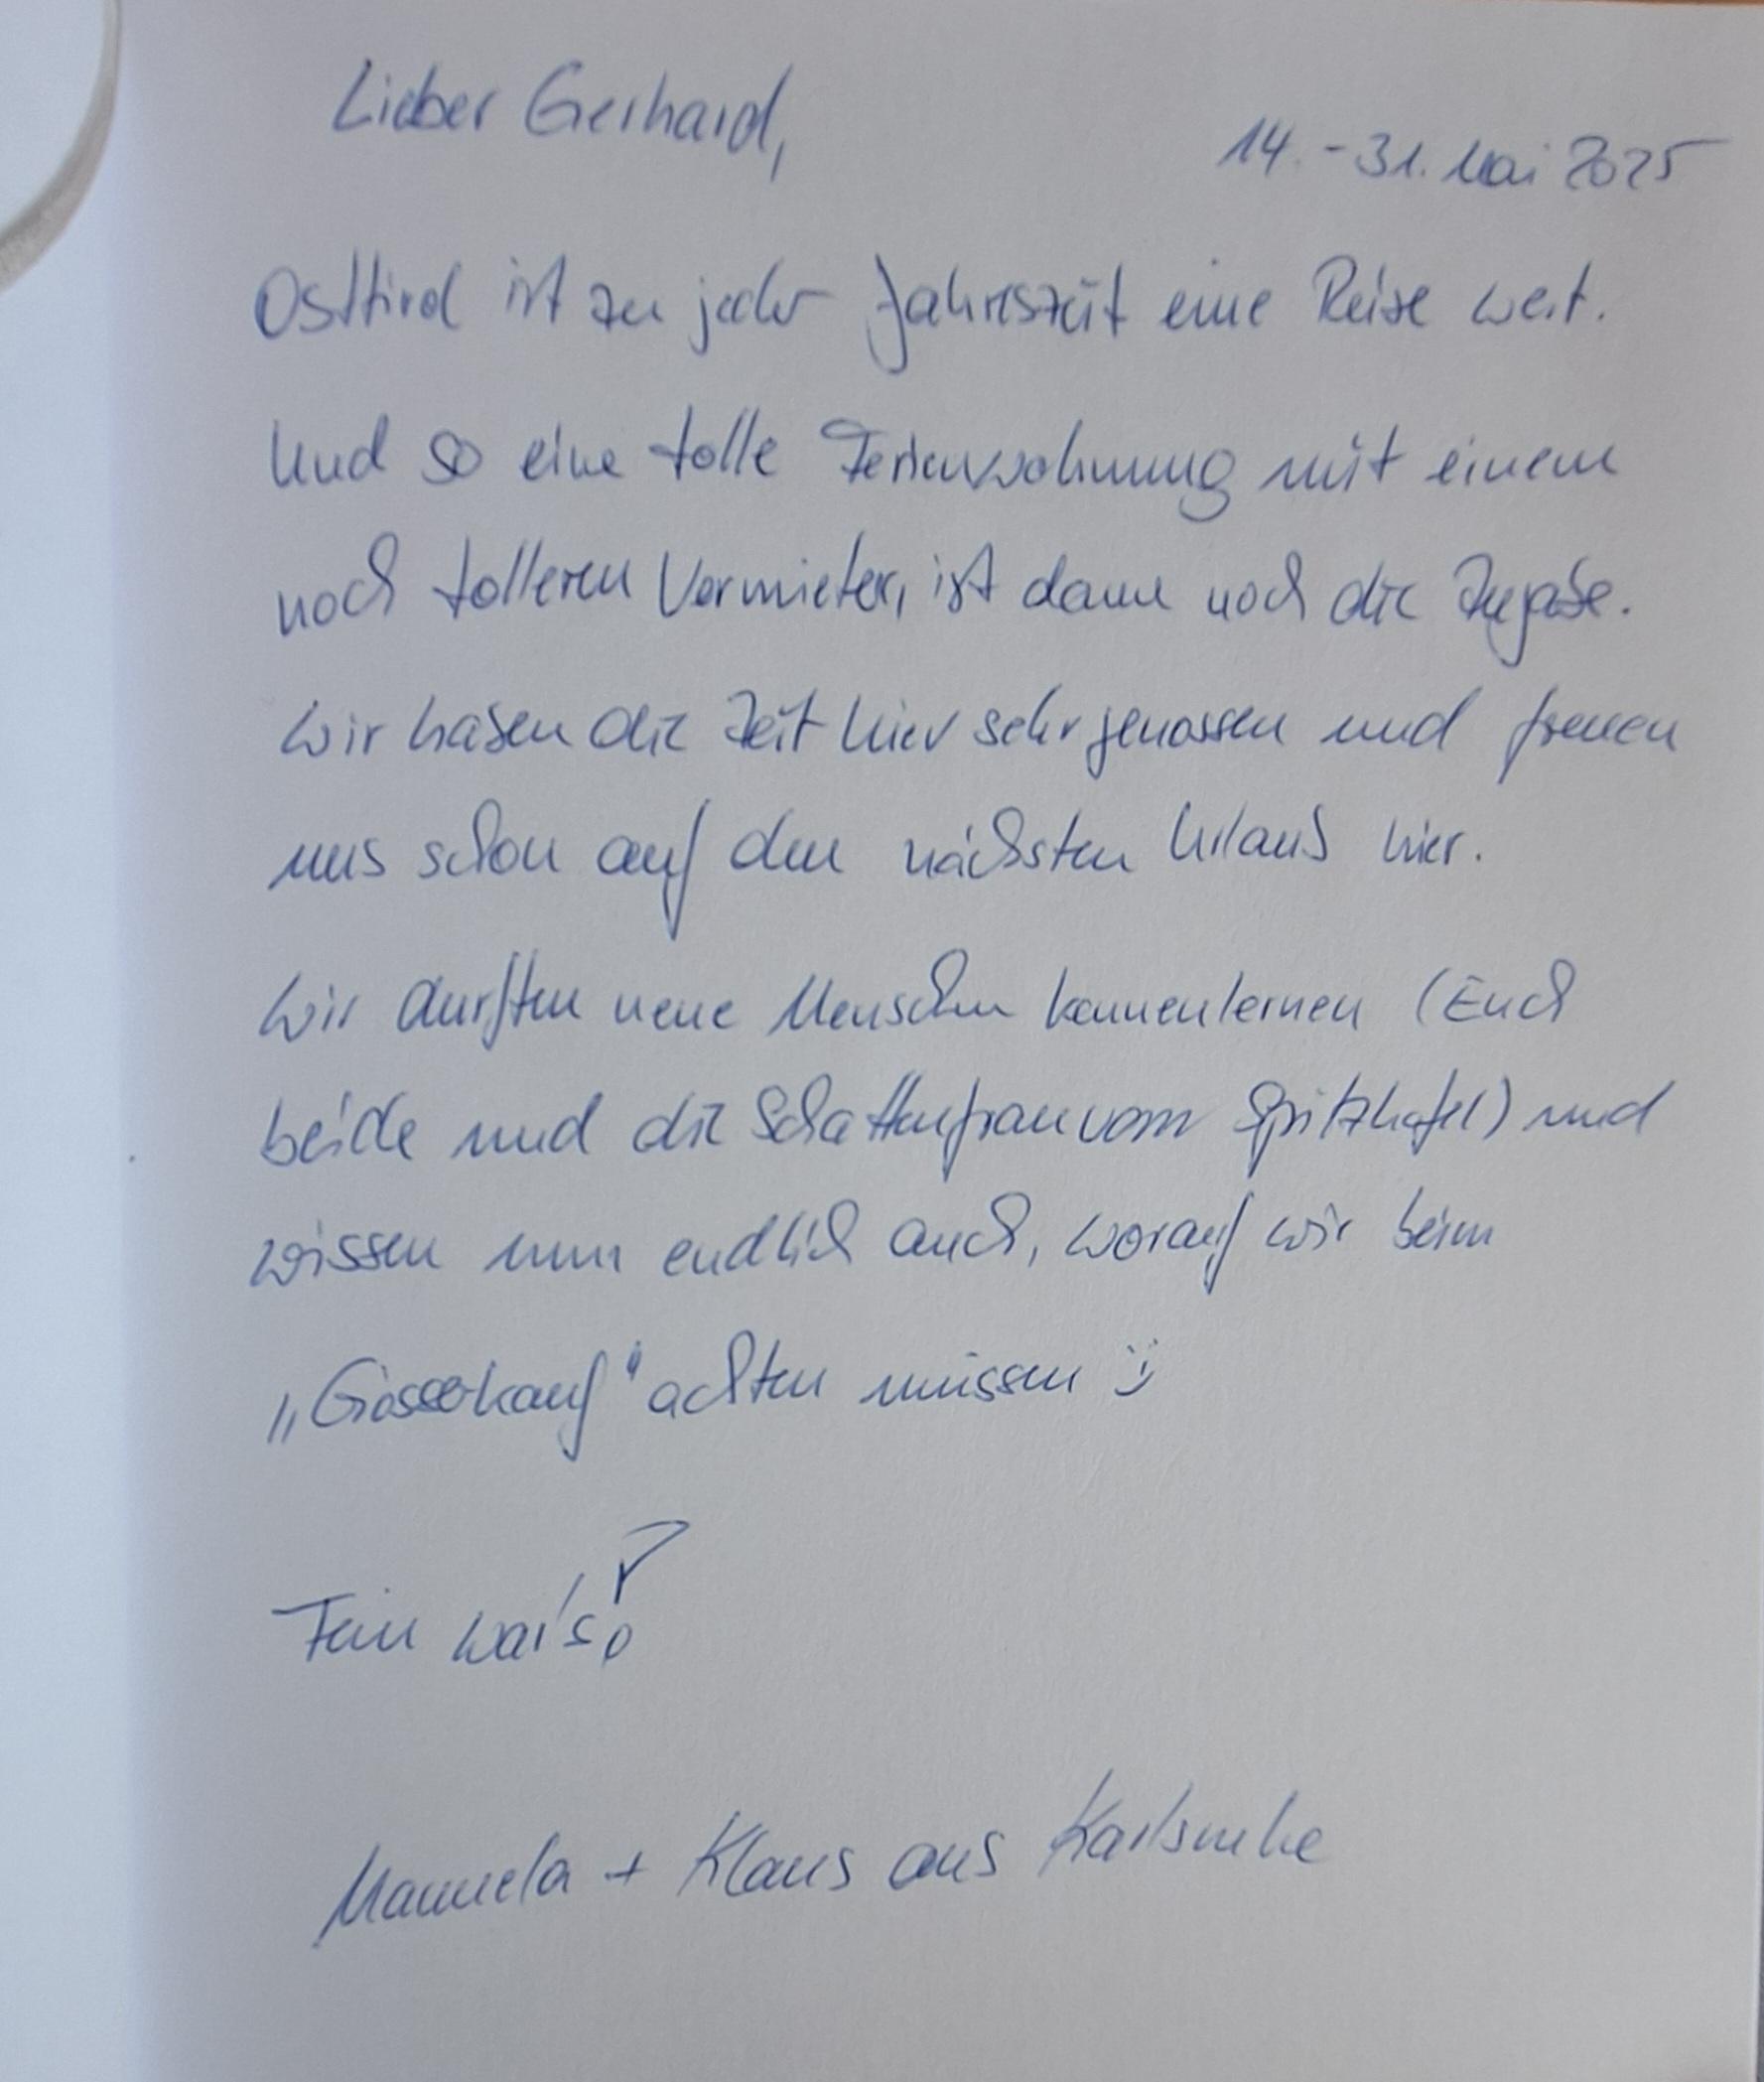 Lieber Gerhard,
14. - 31. Mai 2025
Osttirol ist zu jeder Jahreszeit eine Reise wert.
Und so eine tolle Ferienwohnung mit einem
noch tolleren Vermieter, ist dann noch die Zugabe.
Wir haben die Zeit hier sehr genossen und freuen
uns schon auf den nächsten Urlaub hier.
Wir durften neue Menschen kennenlernen (Euch
beide und die Schattenfrau vom Spitzkofel) und
wissen nun endlich auch, worauf wir beim
„Gösserkauf" achten müssen :)
Fein war's?
Manuela + Klaus aus Karlsruhe